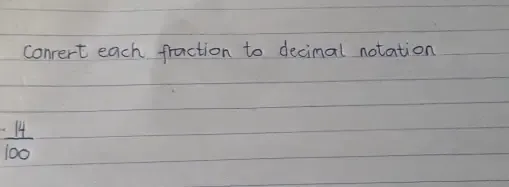 Conrert each fraction to decimal notation
- 14
100